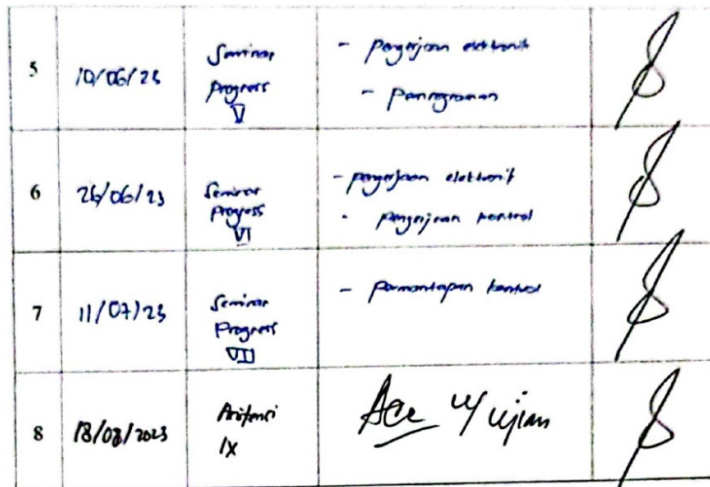 5
10/06/23
Seminar
Progress
V
- Pengerjaan elektronik
- Pemrograman
6
26/06/23
Seminar
Progress
VI
- Pengerjaan elektronik
- Pengerjaan kontrol
7
11/07/23
Seminar
Progress
VII
- Pemantapan kontrol
8
18/08/2023
IX
Acc u/ ujian